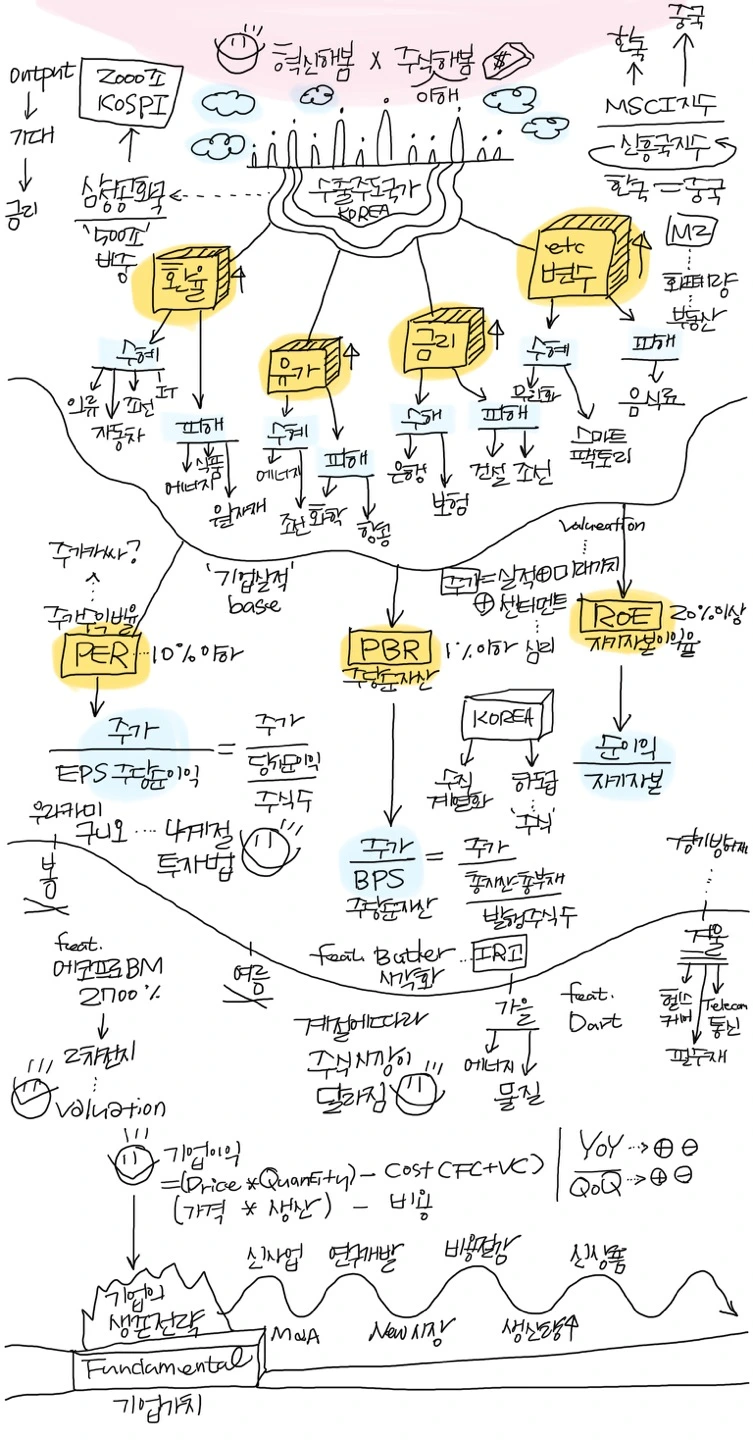 혁신해봄 x 주식해봄 $
이해
output
기대
금리
2000포
KOSPI
삼성공화국
'500조'
비중
수출주도국가
KOREA
한국
중국
MSCI지수
신흥국지수
한국 = 중국
M2
화폐량
부동산
환율
수혜
의류
자동차
조선
IT
피해
에너지
식품
원자재
유가
수혜
에너지
조선
피해
화학
항공
금리
수혜
은행
보험
피해
건설
조선
etc
변수
수혜
스마트
팩토리
피해
음식료
주가가싸?
주가수익비율
PER 10%이하
'기업실적'
base
주가 = 실적 ⊕ 미래가치
⊕ 센티먼트
심리
valueation
PBR 1%이하
주당순자산
ROE 20%이상
자기자본이익율
주가
EPS 주당순이익
=
주가
당기순이익
주식수
KOREA
수직
계열화
하도급
'주식'
순이익
자기자본
주가
BPS
주당순자산
=
주가
총자산-총부채
발행주식수
우라카미
구니오 ... 4계절
투자법
봄
feat.
에코프로BM
2700%
2차전지
valuation
여름
feat. Butler
시각화
IR고
가을
에너지
물질
feat.
Dart
계절에따라
주식시장이
달라짐
경기방어재
겨울
헬스
케어
Telecom
통신
필수재
기업이익
=(Price*Quantity) - Cost(FC+VC)
(가격 * 생산) - 비용
YoY ⊕ ⊖
QoQ ⊕ ⊖
기업의
생존전략
Fundamental
기업가치
신사업
연구개발
비용절감
신상품
M&A
New시장
생산량↑